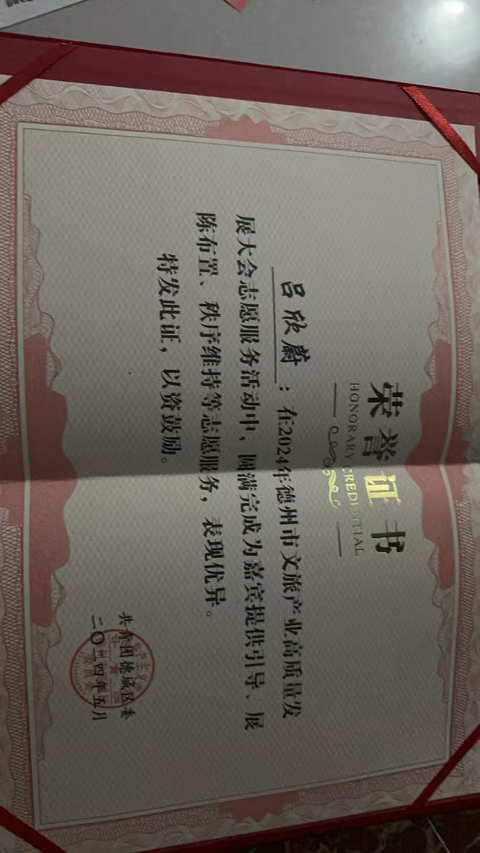 荣誉证书
HONORARY CREDENTIAL
吕欣蔚：在2024年德州市文旅产业高质量发
展大会志愿服务活动中，圆满完成为嘉宾提供引导、展
陈布置、秩序维持等志愿服务，表现优异。
特发此证，以资鼓励。
共青团德城区委
二〇二四年五月